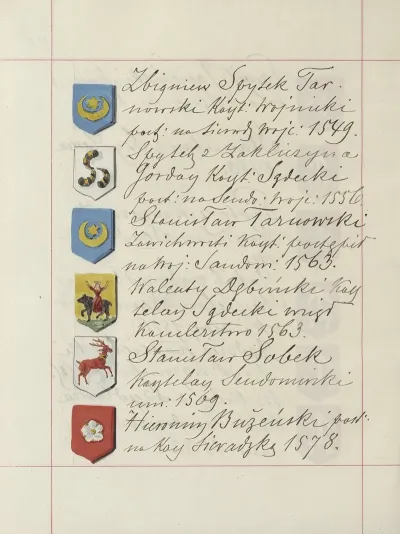 Zbigniew Spytek Tar-
nowski Kaszt: Wojnicki
post: na Sieradz Wojc: 1549.
Spytek z Zakliczyna
Jordan Kaszt: Sądecki
post: na Sendo: Woje: 1556.
Stanisław Tarnowski
Zawichwosti Kaszt: postąpił
na Woj: Sandom: 1563.
Walenty Dębiński Kasz
telan Sądecki wziął
Kanclerstwo 1563.
Stanisław Sobek
Kasztelan Sendomirski
um: 1569.
Hieronim Bużeński post:
na Kasz Sieradzką 1578.